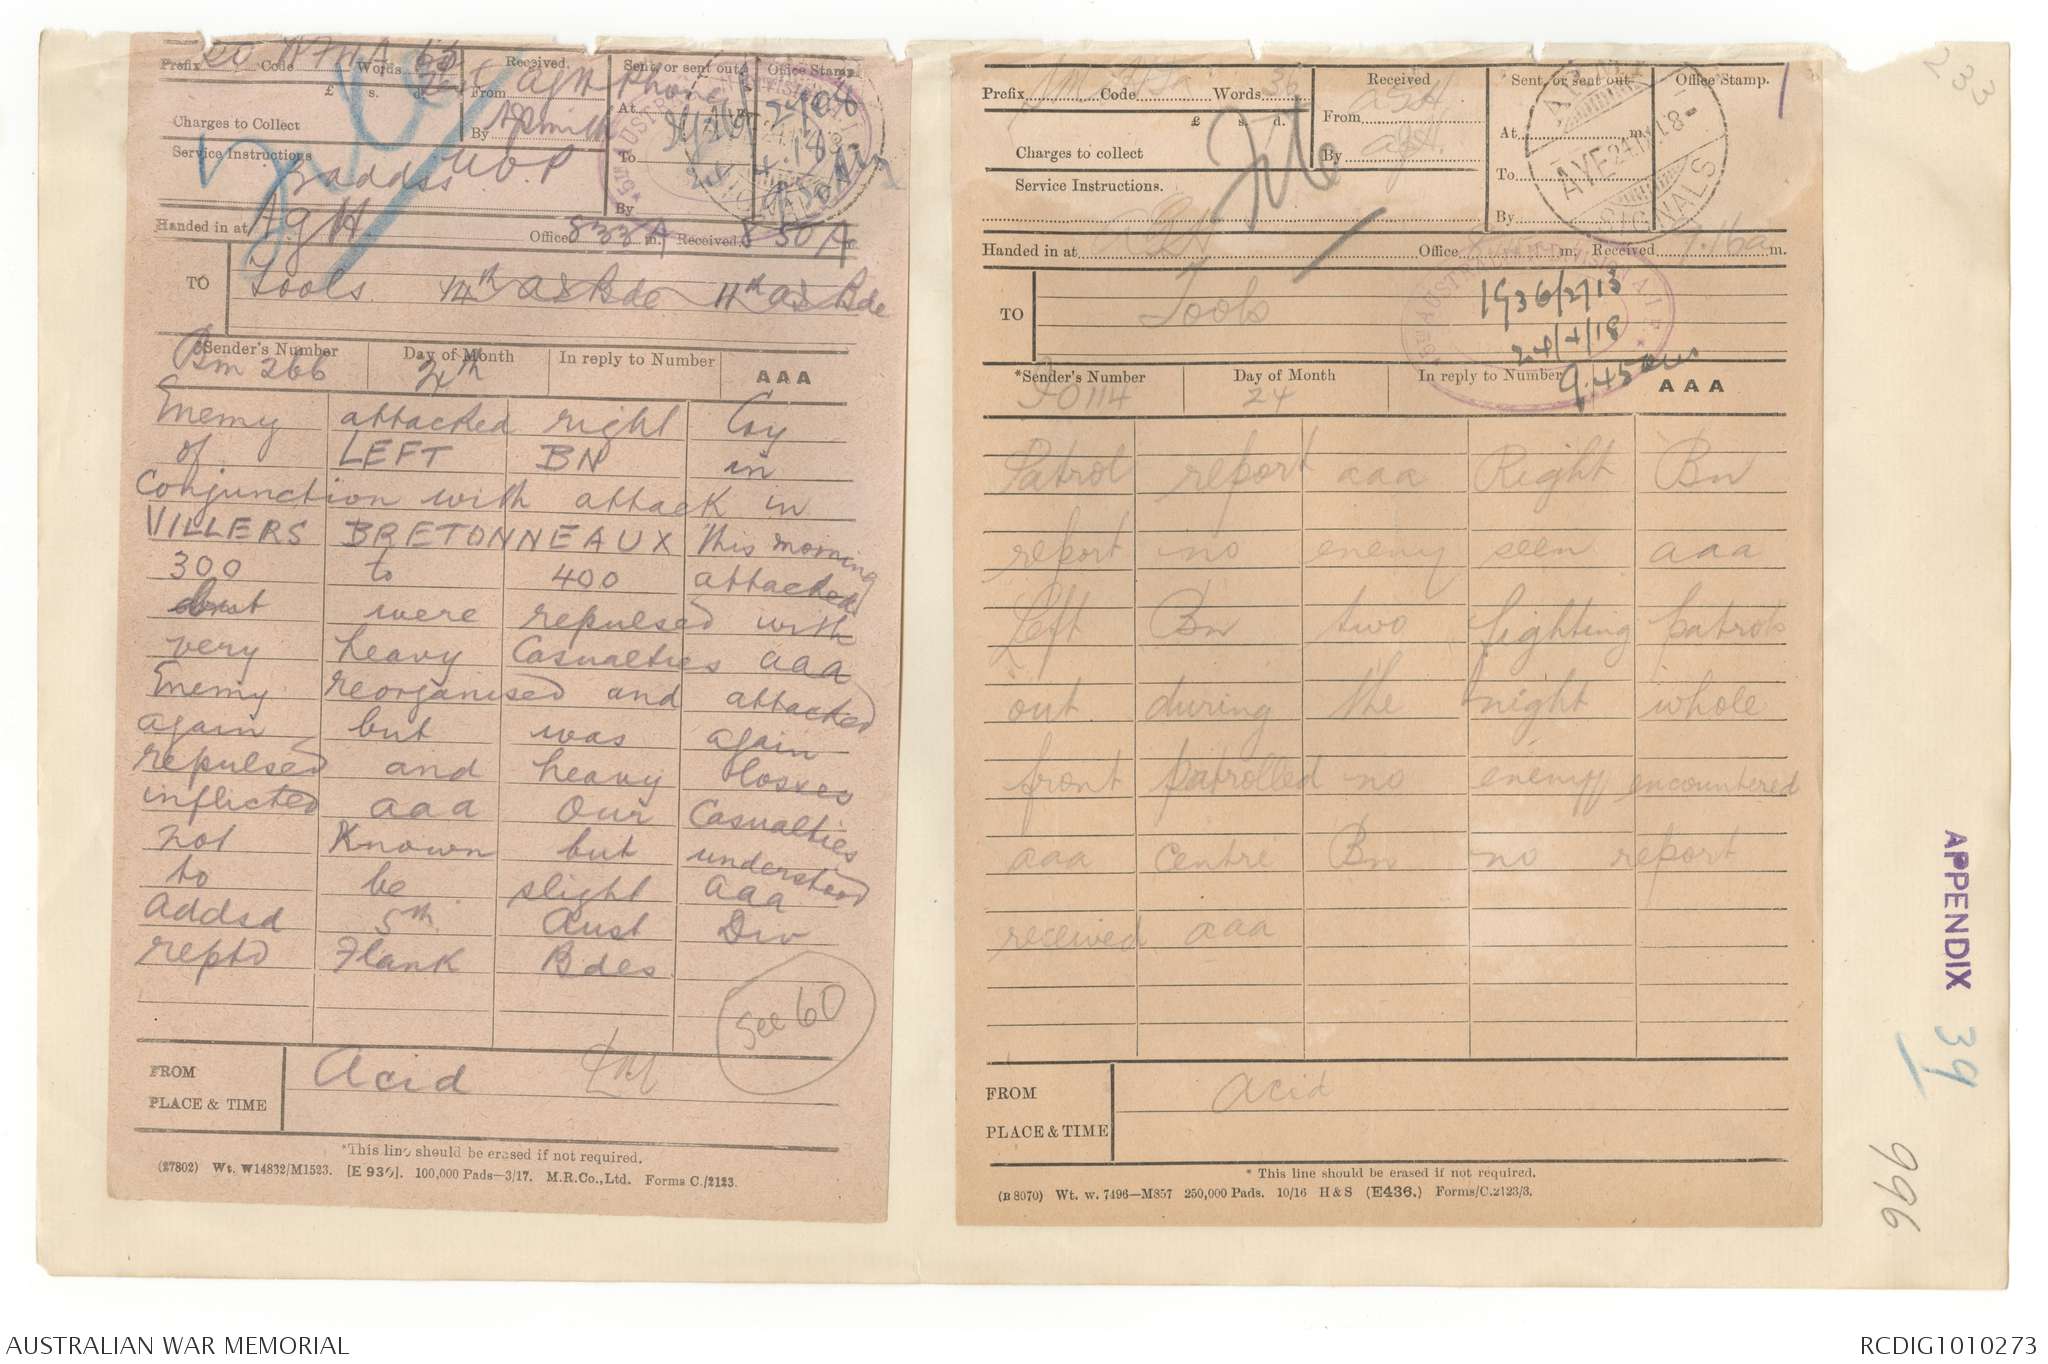 Prefix Code Words
Received. From AGH By A Smith
Sent, or sent out At To By
Office Stamp
£ s. d.
Charges to Collect
Phone
Service Instructions
3 addss U.O.P
Handed in at AGH Office 833 A m. Received 850 A
TO Tools 14th as Bde 11th as Bde
*Sender's Number Bm 266
Day of Month 24th
In reply to Number
AAA
Enemy attacked right Coy
of LEFT BN in
Conjunction with attack in
VILLERS BRETONNEAUX this morning
300 to 400 attacked
but were repulsed with
very heavy Casualties aaa
Enemy reorganised and attacked
again but was again
repulsed and heavy losses
inflicted aaa Our Casualties
not Known but understood
to be slight aaa
Addsd 5th Aust Div
reptd Flank Bdes.
See 60
FROM Acid
PLACE & TIME
*This line should be erased if not required.
(27802) Wt. W14832/M1523. [E 930]. 100,000 Pads—3/17. M.R.Co., Ltd. Forms C./2123.
Prefix Code Words 36
Received From AGH By
Sent, or sent out At m. To By
Office Stamp.
£ s. d.
Charges to collect
Service Instructions.
File
AYE 24.IV.18
SIGNALS
Handed in at AGH Office m. Received 9.16a m.
TO Tools
5TH AUSTRALIAN DIVISION A.I.F.
1936/2713
24/4/18
9.45am
*Sender's Number IO114
Day of Month 24
In reply to Number
AAA
Patrol report aaa Right Bn
report no enemy seen aaa
Left Bn two fighting patrols
out during the night whole
front patrolled no enemy encountered
aaa centre Bn no report
received aaa
FROM acid
PLACE & TIME
* This line should be erased if not required.
(B 8070) Wt. w. 7496—M857 250,000 Pads. 10/16 H & S (E436.) Forms/C.2123/3.
233
APPENDIX 39
996
AUSTRALIAN WAR MEMORIAL
RCDIG1010273